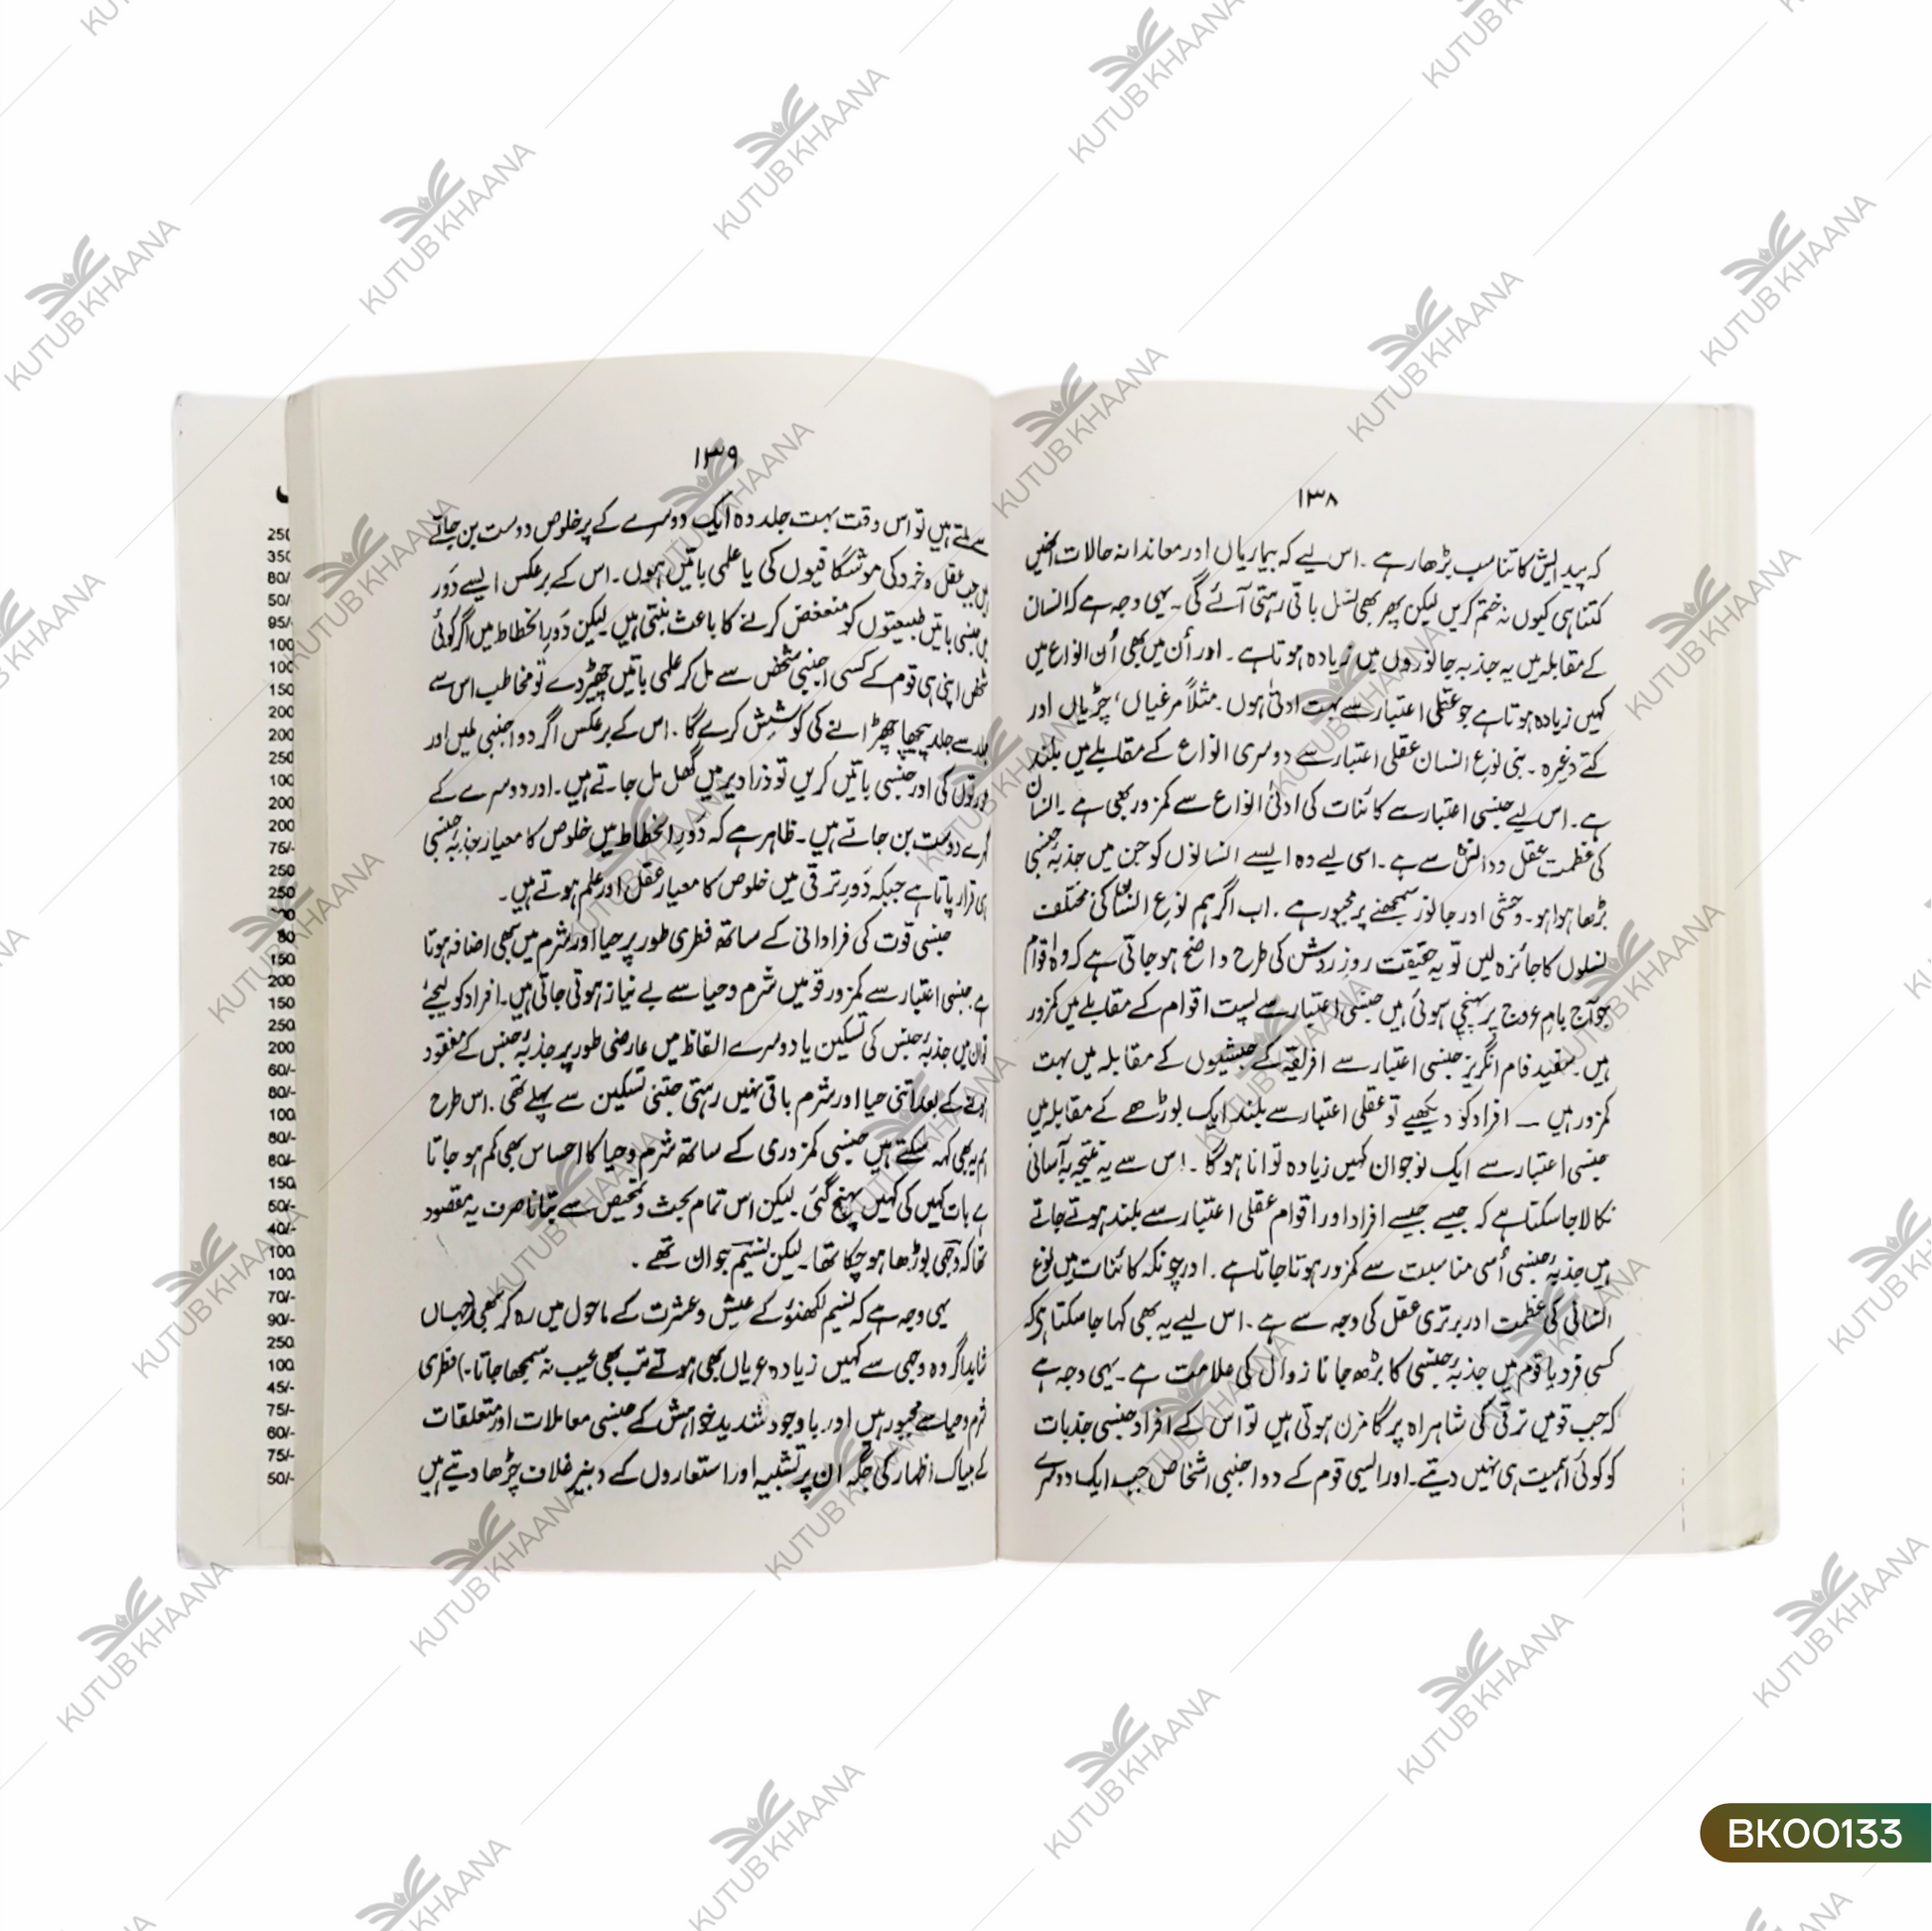 ۱۳۸
کہ پیدایش کا تناسب بڑھا رہے ۔ اس لیے کہ بیماریاں اور معاندانہ حالات انھیں
کتنا ہی کیوں نہ ختم کریں لیکن پھر بھی نسل باقی رہتی آئے گی ۔ یہی وجہ ہے کہ انسان
کے مقابلہ میں یہ جذبہ جانوروں میں زیادہ ہوتا ہے ۔ اور اُن میں بھی اُن انواع میں
کہیں زیادہ ہوتا ہے جو عقلی اعتبار سے بہت ادنیٰ ہوں ۔ مثلاً مرغیاں ، چڑیاں اور
کتے وغیرہ ۔ بنی نوعِ انسان عقلی اعتبار سے دوسری انواع کے مقابلے میں بلند
ہے ۔ اس لیے جنسی اعتبار سے کائنات کی ادنیٰ انواع سے کمزور بھی ہے ۔ انسان
کی عظمت عقل و دانش سے ہے ۔ اسی لیے وہ ایسے انسانوں کو جن میں جذبۂ جنسی
بڑھا ہوا ہو ۔ وحشی اور جانور سمجھنے پر مجبور ہے ۔ اب اگر ہم نوعِ انسانی کی مختلف
نسلوں کا جائزہ لیں تو یہ حقیقت روزِ روشن کی طرح واضح ہو جاتی ہے کہ وہ اقوام
جو آج بامِ عروج پر پہنچی ہوئی ہیں جنسی اعتبار سے پست اقوام کے مقابلے میں کمزور
ہیں ۔ سفید فام انگریز جنسی اعتبار سے افریقہ کے حبشیوں کے مقابلہ میں بہت
کمزور ہیں ـــ افراد کو دیکھیے تو عقلی اعتبار سے بلند ایک بوڑھے کے مقابلہ میں
جنسی اعتبار سے ایک نوجوان کہیں زیادہ توانا ہوگا ۔ اس سے یہ نتیجہ بہ آسانی
نکالا جا سکتا ہے کہ جیسے جیسے افراد اور اقوام عقلی اعتبار سے بلند ہوتے جاتے
ہیں جذبۂ جنسی اُسی مناسبت سے کمزور ہوتا جاتا ہے ۔ اور چونکہ کائنات میں نوع
انسانی کی عظمت اور برتری عقل کی وجہ سے ہے ۔ اس لیے یہ بھی کہا جا سکتا ہے کہ
کسی فرد یا قوم میں جذبۂ جنسی کا بڑھ جانا زوال کی علامت ہے ۔ یہی وجہ ہے
کہ جب قومیں ترقی کی شاہراہ پر گامزن ہوتی ہیں تو اس کے افراد جنسی جذبات
کو کوئی اہمیت ہی نہیں دیتے ۔ اور ایسی قوم کے دو اجنبی اشخاص جب ایک دوسرے
۱۳۹
سے ملتے ہیں تو اس وقت بہت جلد وہ ایک دوسرے کے پرخلوص دوست بن جاتے
ہیں جب عقل و خرد کی موشگافیوں کی یا علمی باتیں ہوں ۔ اس کے برعکس ایسے دَور
میں جنسی باتیں طبیعتوں کو منغض کرنے کا باعث بنتی ہیں ۔ لیکن دَورِ انحطاط میں اگر کوئی
شخص اپنی ہی قوم کے کسی اجنبی شخص سے مل کر علمی باتیں چھیڑ دے تو مخاطب اس سے
جلد سے جلد پیچھا چھڑانے کی کوشش کرے گا ۔ اس کے برعکس اگر دو اجنبی ملیں اور
عورتوں کی اور جنسی باتیں کریں تو ذرا دیر میں گھل مل جاتے ہیں ۔ اور دوسرے کے
گہرے دوست بن جاتے ہیں ۔ ظاہر ہے کہ دَورِ انحطاط میں خلوص کا معیار جذبۂ جنسی
ہی قرار پاتا ہے جبکہ دَورِ ترقی میں خلوص کا معیار عقل اور علم ہوتے ہیں ۔
جنسی قوت کی فراوانی کے ساتھ فطری طور پر حیا اور شرم میں بھی اضافہ ہوتا
ہے ۔ جنسی اعتبار سے کمزور قومیں شرم و حیا سے بے نیاز ہوتی جاتی ہیں ۔ افراد کو لیجیے
تو ان میں جذبۂ جنس کی تسکین یا دوسرے الفاظ میں عارضی طور پر جذبۂ جنس کے مفقود
ہونے کے بعد اتنی حیا اور شرم باقی نہیں رہتی جتنی تسکین سے پہلے تھی ۔ اس طرح
ہم یہ بھی کہہ سکتے ہیں جنسی کمزوری کے ساتھ شرم و حیا کا احساس بھی کم ہو جاتا
ہے بات کہیں کی کہیں پہنچ گئی ۔ لیکن اس تمام بحث و تمحیص سے بتانا صرف یہ مقصود
تھا کہ وجہی بوڑھا ہو چکا تھا ۔ لیکن نسیم جوان تھے ۔
یہی وجہ ہے کہ نسیم لکھنؤ کے عیش و عشرت کے ماحول میں رہ کر بھی (جہاں
شاید اگر وہ وجہی سے کہیں زیادہ عریاں بھی ہوتے تب بھی عیب نہ سمجھا جاتا ۔) فطری
شرم و حیا سے مجبور ہیں اور باوجود شدید خواہش کے جنسی معاملات اور متعلقات
کے بیباک اظہار کی جگہ ان پر تشبیہ اور استعاروں کے دبیز غلاف چڑھا دیتے ہیں
250
350
80/
50/
95/
100
100
150
200
200
250
100
200
200
75/-
250
250
80
150
200
150
250
200
60/-
80/-
100
80/-
80/-
150
50/-
40/-
100
100
70/-
90/-
250
100
45/-
75/-
60/-
75/-
50/-
KUTUB KHAANA
BK00133